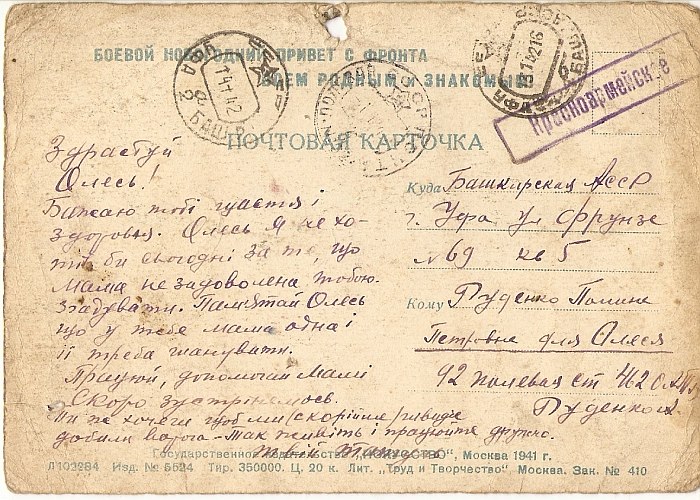 БОЕВОЙ НОВОГОДНИЙ ПРИВЕТ С ФРОНТА
ВСЕМ РОДНЫМ И ЗНАКОМЫМ
УФА
БАШ
14 1 42
13 1 42 16
Красноармейское
ПОЧТОВАЯ КАРТОЧКА
Здраствуй
Олесь!
Бажаю тобі щастя і
здоровья. Олесь я не хо-
тів би сьогодні за те, що
мама не задоволена тобою
згадувати. Памятай Олесь
що у тебе мама одна і
її треба шанувати.
Працюй, допомагай мамі
Скоро зустрінемось.
Ти не хочеш щоб ми (скорійше) швидче
добили ворога - так живіть і працюйте дружно.
твій тато
Куда Башкирская АССР
г. Уфа ул Фрунзе
№ 69 кв 5
Кому Руденко Полине
Петровне для Олеся
92 полевая ст 462
Руденко
Государственное издательство "ИСКУССТВО", Москва 1941 г.
Л102284 Изд. № 5524 Тир. 350000. Ц. 20 к. Лит. „Труд и Творчество" Москва. Зак. № 410